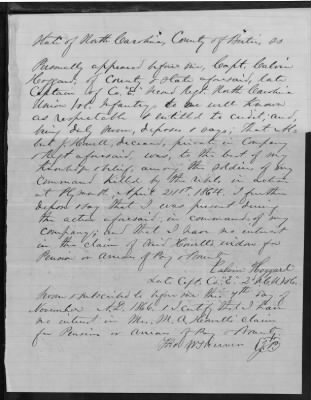 State of North Carolina, County of Bertie, ss
Personally appeared before me, Capt. Calvin
Hoggard, of County & State aforesaid, late
Captain of Co. "E" Second Regt. North Carolina
Union Vol. Infantry, to me well known
as respectable & entitled to credit, and,
being duly sworn, deposes & says; that
J. Howell, deceased, private in Company
& Regt aforesaid, was, to the best of my
knowledge & belief, among the soldiers of my
command killed by the rebels in action
at Plymouth April 20th 1864. I further
depose & say that I was present during
the action aforesaid, in command of my
company; and that I have no interest
in the claim of said Howell's widow for
Pension or Arrears of Pay & Bounty
Calvin Hoggard
Late Capt. Co. E. 2d N.C.U. Vols.
Sworn & subscribed to before me this 7th day of
November A.D. 1866. & I certify that I have
no interest in Mrs. M. A. Howell's claim
for Pension or arrears of Pay & Bounty